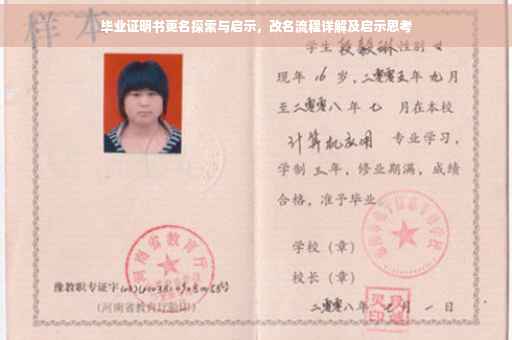 毕业证明书更名探索与启示，改名流程详解及启示思考
样本
学生 段毅琳 性别 女
现年 16 岁，二零零五年 九月
至二零零八年 七 月在本校
计算机应用 专业学习，
学制 三 年，修业期满，成绩
合格，准予毕业。
学校（章）
校长（章）
二零零八年 七 月 一 日
河南省教育厅
豫教职专证字
（河南省教育厅验印）